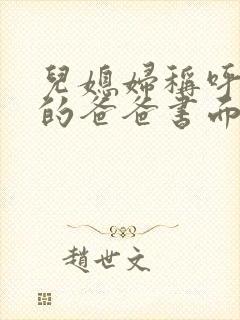 兒媳婦稱呼
的爸爸書面
趙世文